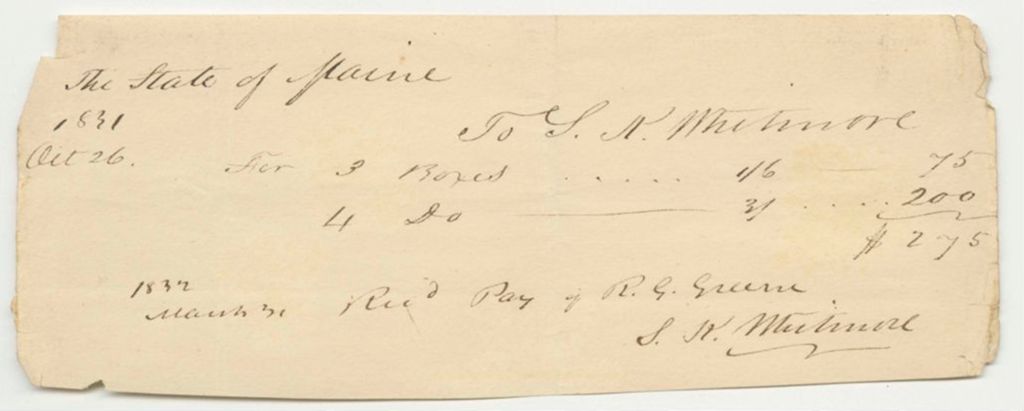 The State of Maine
1831
To S. K. Whitmore
Oct 26.
For 3 Boxes ...... 1/6 — 75
4 Do — 3/ ..... 200
$ 275
1832
March 31 Rec'd Pay of R. G. Greene
S. K. Whitmore